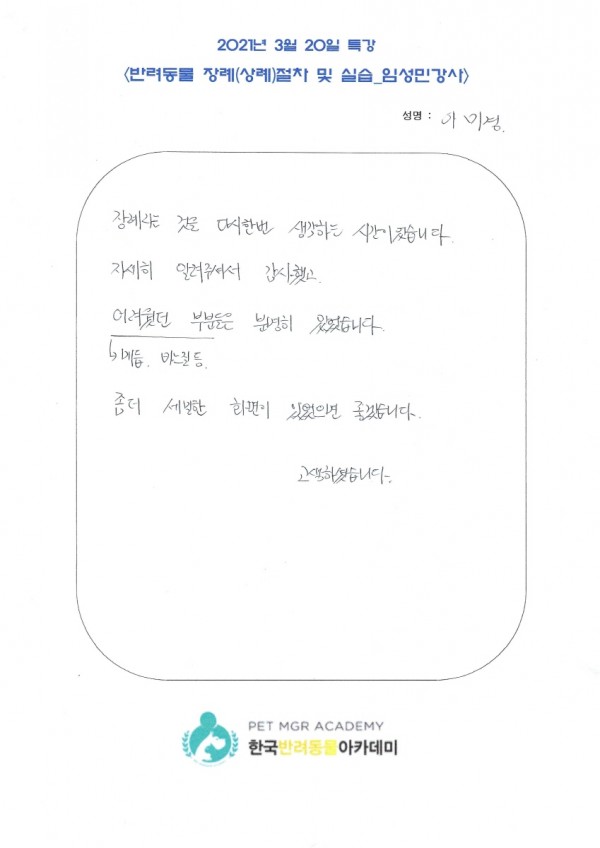 2021년 3월 20일 특강
<반려동물 장례(상례)절차 및 실습_임성민강사>
성명 : 이미경.
장례라는 것을 다시한번 생각하는 시간이 됐습니다.
자세히 알려주셔서 감사했고
어려웠던 부분들은 분명히 있었습니다.
↳매듭, 바느질 등.
좀더 세밀한 화면이 있었으면 좋겠습니다.
고생하셨습니다~
PET MGR ACADEMY
한국반려동물아카데미